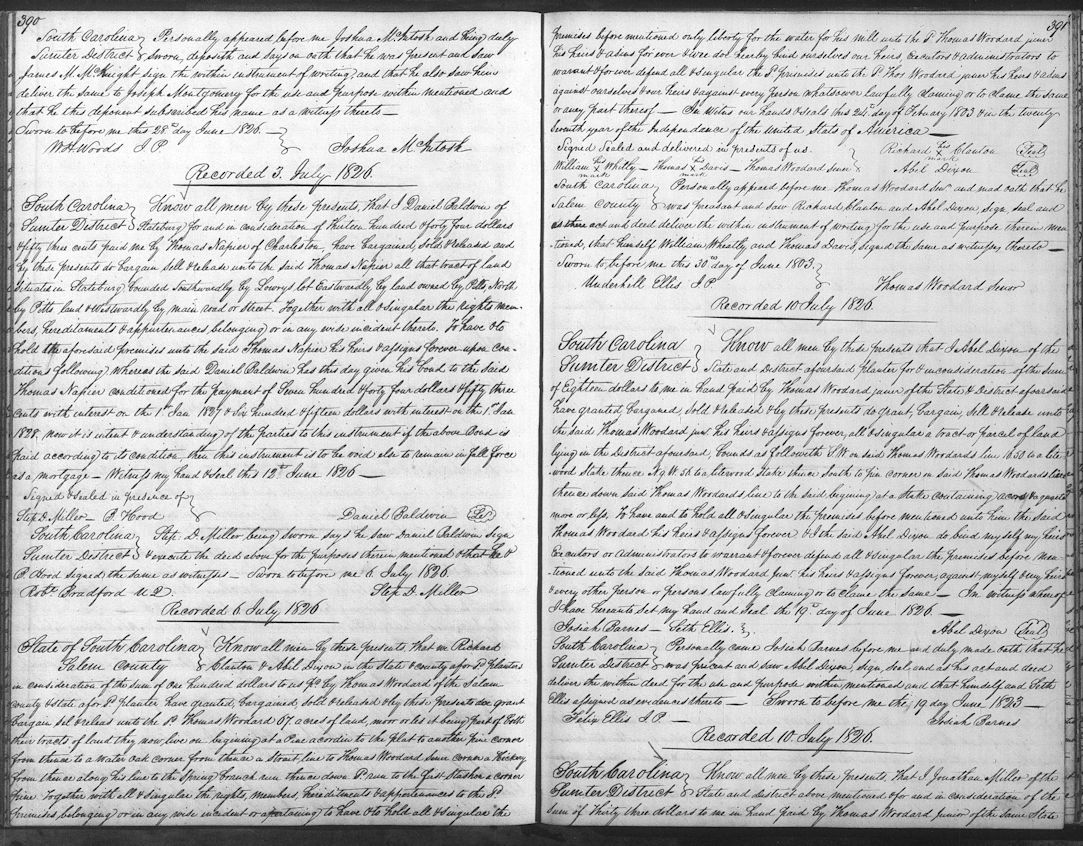 390
South Carolina } Personally appeared before me Joshua McIntosh and being duly
Sumter District } Sworn, deposith and says on oath that he was present and saw
James M. McKnight sign the within instrument of writing and that he also saw him
deliver the same to Joseph Montgomery for the use and purpose within mentioned and
that he this deponent subscribed his name as a witness thereto —
Sworn to before me this 28th day June 1826. — }
W. H. Woods J P. } Joshua McIntosh
Recorded 3. July 1826.
South Carolina } Know all men by these presents, that I Daniel Baldwin of
Sumter District } Stateburg for and in consideration of thirteen hundred & forty four dollars
& fifty three cents paid me by Thomas Napier of Charleston, have bargained, Sold, & released and
by these presents do bargain Sell & release unto the said Thomas Napier all that tract of land
situate in Stateburg bounded Southwardly by Lowrys lot Eastwardly by land owned by Pitts, North
by Pitts land & Westwardly by main road or street. Together with all & singular the rights mem-
bers, heredelaments & appurtenances, belonging or in any wise incident thereto. To have & to
hold the aforesaid premises unto the said Thomas Napier his heirs & assigns forever upon con-
ditions following Whereas the said Daniel Baldwin has this day given his bond to the Said
Thomas Napier conditioned for the payment of Seven hundred & forty four dollars & fifty three
cents with interest on the 1st Jan 1827 & Six hundred & fifteen dollars with interest on the 1st Jan
1828, now it is intent & understanding of the parties to this instrument if the above Bond is
paid according to its condition, then this instrument is to be void else to remain in full force
as a mortgage — Witness my hand & seal this 12th June 1826 —
Signed & sealed in presence of }
Step. D. Miller — P. Hood } Daniel Baldwin
South Carolina } Step. D. Miller being Sworn says he saw Daniel Baldwin Sign
Sumter District } & execute the deed above for the purposes therein mentioned & that he &
P. Hood signed the same as witnesses — Sworn to before me 6. July 1826
Robt. Bradford Step. D. Miller
Recorded 6 July 1826
State of South Carolina } Know all men by these presents, that we Richard
Salem County } Clanton & Abel Dixon in the state & county afor Sd planters
in consideration of the sum of one hundred dollars to us pd. by Thomas Woodard of the Salem
county & state afor Sd planter have granted, bargained, Sold & released & by these presents doe grant
bargain sel & releas unto the Sd Thomas Woodard 37 acres of land, moor or les it being part of Both
their tracts of land they now live on begining at a Pine acordin to the plat to another pine corner
from thence to a Water oak corner from thence a strait line to Thomas Woodard Senr corner a Hickory
from thence along his line to the Spring branch run thence down Sd run to the first Stashon a corner
pine. Together with all & singular the rights, members, hereditments & appertenances to the Sd
premises, belonging or in any wise incident or apertaining to have & to hold all & singular the
391
premises before mentioned only liberty for the water for his mill unto the Sd Thomas Woodard juner
his heirs & asins for ever & we dot hereby bind ourselves our heirs, executors & administrators to
warant & forever defend all & singular the Sd primises unto the Sd Thos Woodard juner his heirs & asins
against ourselves & our heirs & against every person whatsoever lawfully claming or to clame the same
or any part thereof — In witns our hands & seals this 24th day of Febuary 1803 & in the twenty
seventh year of the Independance of the united Stats of America —
Signed Sealed and delivered in presents of us. } Richard his X mark Clanton Seal
William his X mark Whitly — Thomas his X mark Davis — Thomas Woodard Senr } Abel Dixon Seal
South Carolina } Personally appeared before me Thomas Woodard Senr and mad oath that he
Salem County } was preasent and saw Richard Clanton and Abel Dixon, sign, seal and
as there act and deed deliver the within instrument of writing for the use and purpose therein men-
tioned, that himself William Wheatly and Thomas Davis, signed the same as witnesses thereto —
Sworn to before me this 30th day of June 1803. }
Underhill Ellis J P } Thomas Woodard Senor
Recorded 10 July 1826.
South Carolina } Know all men by these presents that I Abel Dixon of the
Sumter District } State and District aforesaid Planter for & in consideration of the Sum
of Eighteen dollars to me in hand paid by Thomas Woodard juner of the State & District aforesaid
have granted Barganed, Sold & released & by these presents do grant, bargain, sell & release unto
the said Thomas Woodard junr. his heirs & assigns forever, all & singular a tract or parcel of land
lying in the district aforesaid, bounds as followeth S. W. on said Thomas Woodards line to a lite
wood Stake thence N 9 W 56 to a litewood stake thence South to pin corner on said Thomas Woodards line
thence down said Thomas Woodards line to the said begining at a stake containing acres & a quarter
more or less. To have and to hold all & singular the premises before mentioned unto him the said
Thomas Woodard his heirs & assigns forever, & I the said Abel Dixon do bind myself my heirs
Executors or Administrators to warrant & forever defend all & singular the premises before men-
tioned unto the said Thomas Woodard Junr. his heirs & assigns forever, against myself & my heirs
& every other person or persons lawfully claiming or to claime the same — In witness whereof
I have hereunto set my hand and seal the 19th day of June 1826 —
Josiah Barnes — Seth Ellis. } Abel Dixon Seal
South Carolina } Personally came Josiah Barnes before me and duly made oath that he
Sumter District } was present and saw Abel Dixon, sign, seal, and as his act and deed
deliver the within deed for the use and purpose within mentioned and that himself and Seth
Ellis assigned as evidences thereto — Sworn to before me the, 19 day June, 1823 —
Felix Ellis J P — Josiah Barnes
Recorded 10 July 1826.
South Carolina } Know all men by these presents, that I Jonathan Miller of the
Sumter District } State and district above mentioned & for and in consideration of the
sum of thirty three dollars to me in hand paid by Thomas Woodard junior of the same State